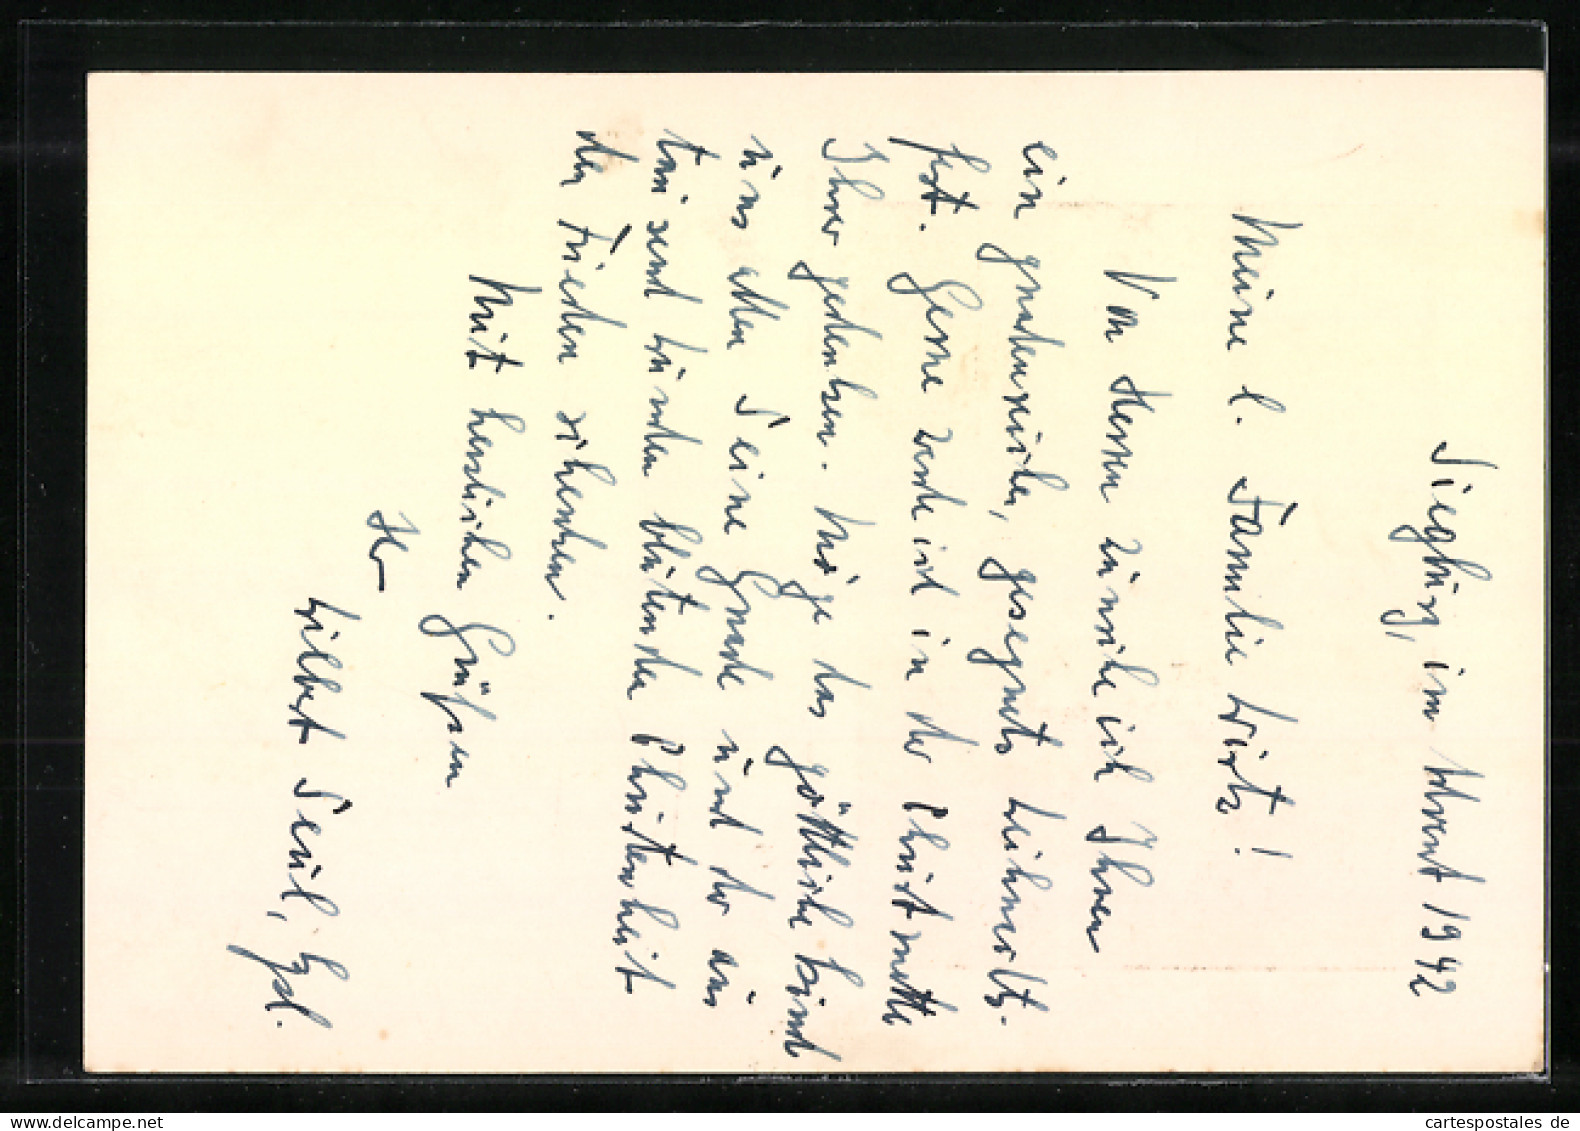 Siegburg, im Advent 1942
Meine l. Familie Wirtz!
Vom Herrn wünsche ich Ihnen
ein gnadenreiches, gesegnets Weihnachts-
fest. Gerne werde ich in der Christmette
Ihrer gedenken. Möge das göttliche Kind
uns allen Seine Gnade und der aus
tausend Wunden blutenden Christenheit
den Frieden schenken.
Mit herzlichen Grüßen
Ihr
Wilbert Seul,
cartespostales de